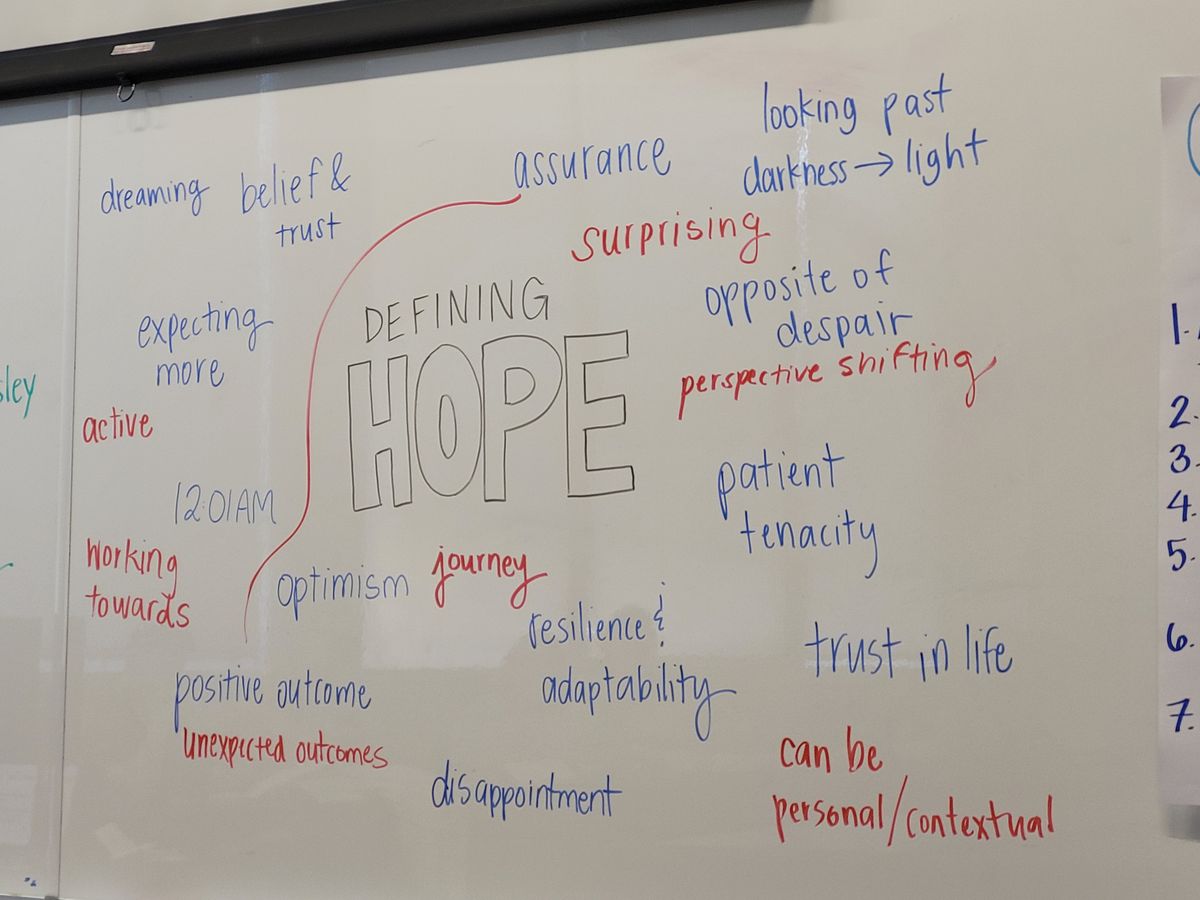 looking past
darkness → light
assurance
dreaming
belief &
trust
surprising
DEFINING
HOPE
opposite of
despair
expecting
more
perspective shifting
active
12:01AM
patient
tenacity
working
towards
optimism
journey
resilience &
adaptability
trust in life
positive outcome
unexpected outcomes
disappointment
can be
personal/contextual
sley
1.
2.
3.
4.
5.
6.
7.